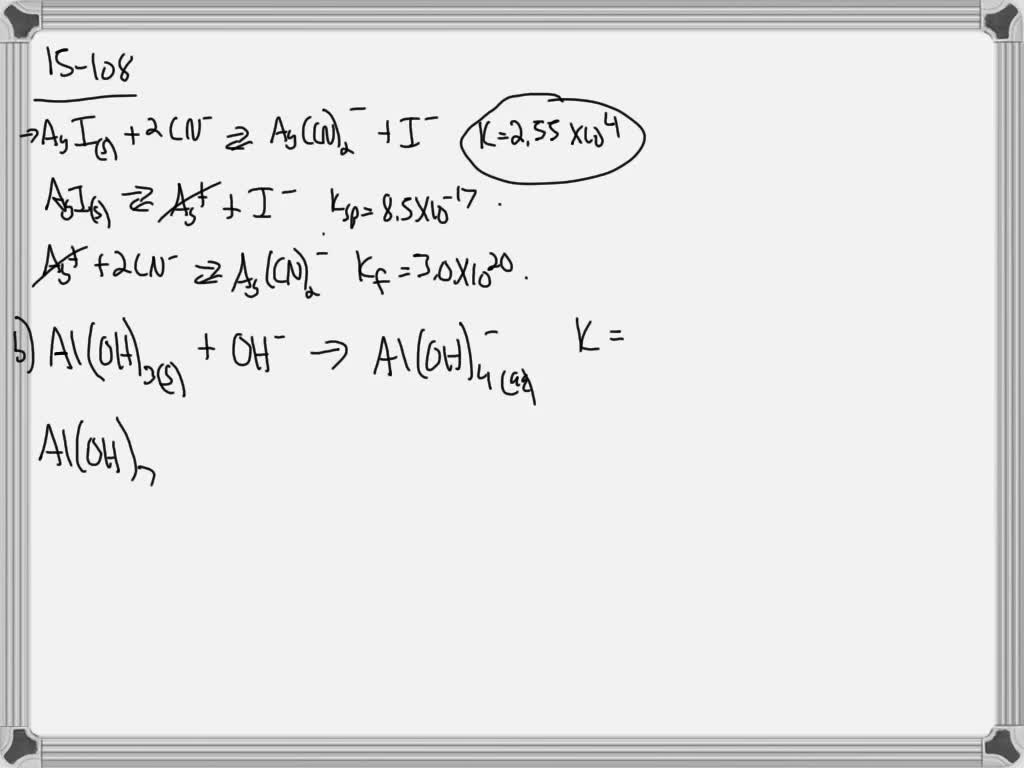 15-108
→AgI(s) + 2CN⁻ ⇌ Ag(CN)₂⁻ + I⁻ K=2.55 x10⁴
AgI(s) ⇌ Ag⁺ + I⁻ Ksp= 8.5X10⁻¹⁷
Ag⁺ + 2CN⁻ ⇌ Ag(CN)₂⁻ Kf = 3.0X10²⁰
b) Al(OH)₃(s) + OH⁻ → Al(OH)₄⁻(aq) K =
Al(OH)